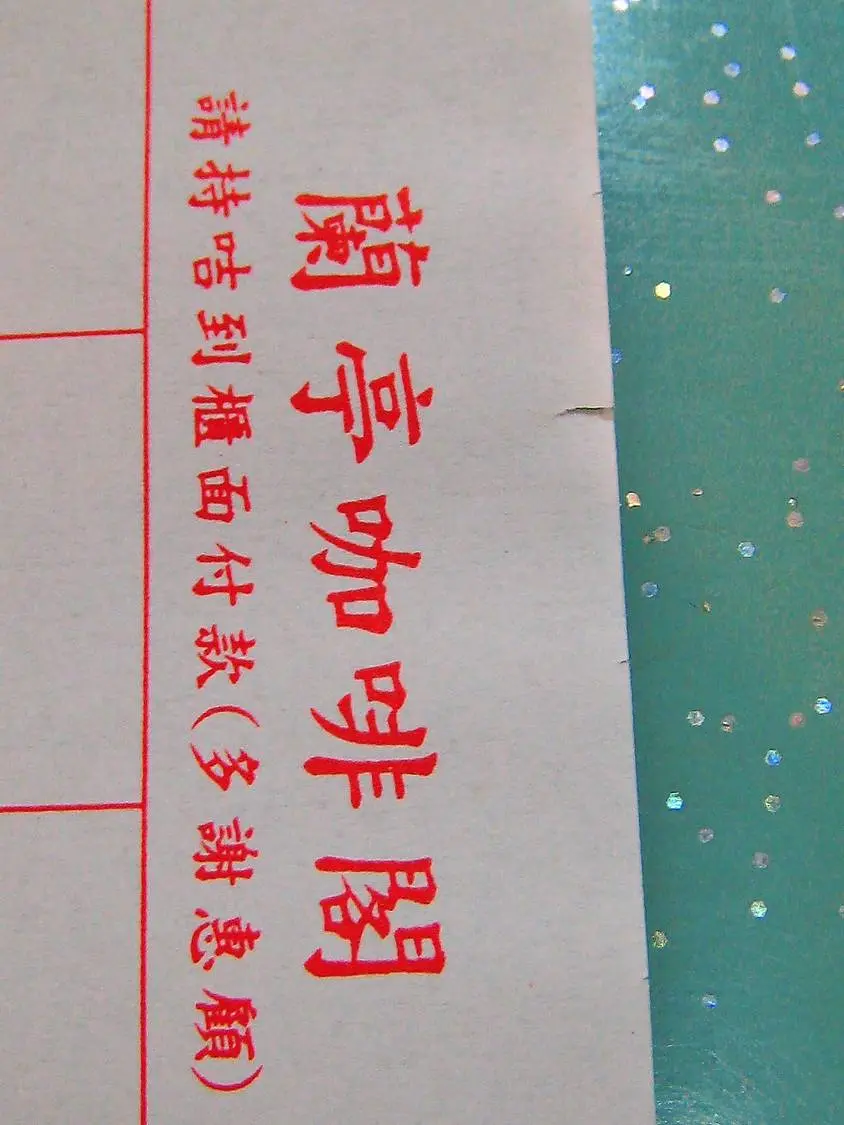 蘭亭咖啡閣
請持咭到櫃面付款(多謝惠顧)